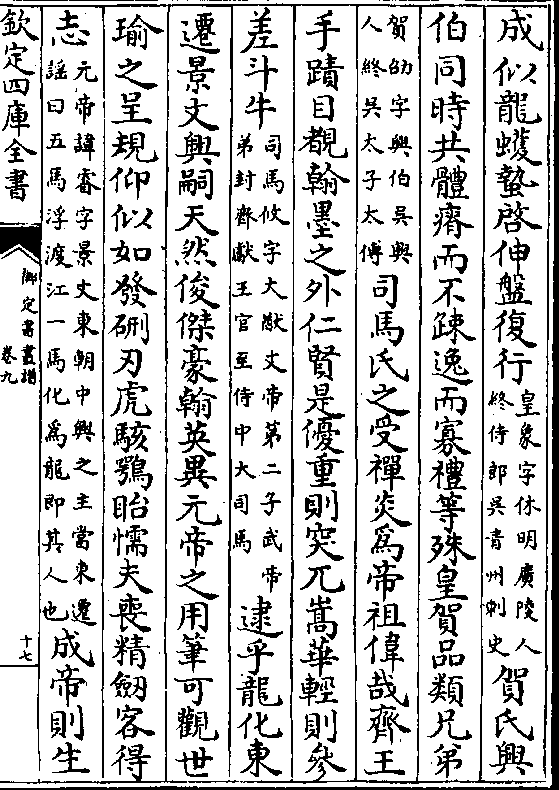 成似龍蠖蟄啓伸盤復行
皇象字休明廣陵人
終侍郎吳青州刺史
賀氏興
伯同時共體瘠而不疎逸而寡禮等殊皇賀品類兄弟
賀劭字興伯吳興
人終吳太子太傅
司馬氏之受禪炎為帝祖偉哉齊王
手蹟目覩翰墨之外仁賢是優重則突兀嵩華輕則參
差斗牛
司馬攸字大猷文帝第二子武帝
弟封齊獻王官至侍中大司馬
逮乎龍化東
遷景文興嗣天然俊傑豪翰英異元帝之用筆可觀世
瑜之呈規仰似如發硎刃虎駭鶚眙懦夫喪精劒客得
志
元帝諱睿字景文東朝中興之主當東遷
謡曰五馬浮渡江一馬化為龍即其人也
成帝則生
欽定四庫全書
御定書畫譜
卷九
十七